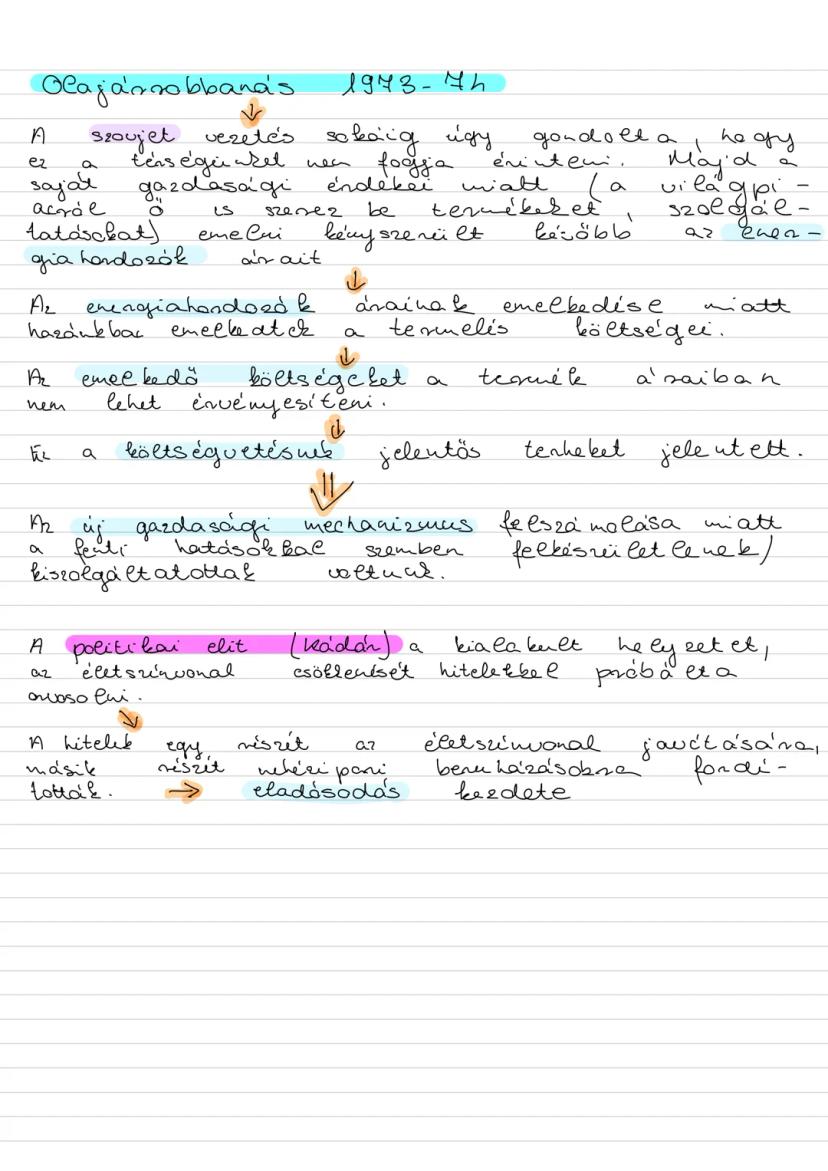 Olajárrobbanás 1973-74
↓
A szovjet vezetés sokáig úgy gondolta, hogy
ez a térségünket nem fogja érinteni. Majd a
saját gazdasági érdekei miatt (a világpi-
acról ő is szerez be termékeket, szolgál-
tatásokat) emelni kényszerült később az ener-
giahordozók árait
↓
Az energiahordozók árainak emelkedése miatt
hazánkban emelkedtek a termelés költségei.
↓
Az emelkedő költségeket a termék áraiban
nem lehet érvényesíteni.
↓
Ez a költségvetésnek jelentős terheket jelentett.
⇓
Az új gazdasági mechanizmus felszámolása miatt
a fenti hatásokkal szemben felkészületlenek/
kiszolgáltatottak voltunk.
A politikai elit (Kádár) a kialakult helyzetet,
az életszínvonal csökkentését hitelekkel próbálta
orvosolni.
↘
A hitelek egy részét az életszínvonal javítására,
másik részét nehézipari beruházásokra fordí-
tották. → eladósodás kezdete